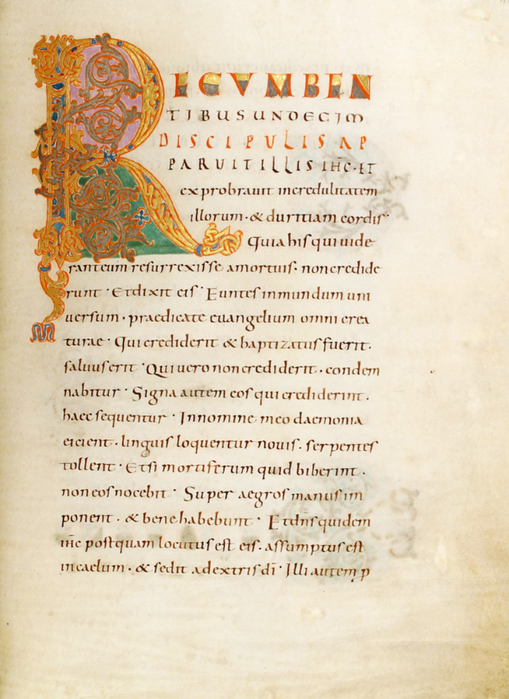 RECUMBEN
TIBUS UNDECIM
DISCIPULIS AP
PARUIT ILLIS IHC· ET
exprobrauit incredulitatem
illorum· & duritiam cordis·
Quia his qui uide
rant eum resurrexisse amortuis· non credide
runt· Et dixit eis· Euntes in mundum uni
uersum· praedicate euangelium omni crea
turae· Qui crediderit & baptizatus fuerit·
saluus erit· Qui uero non crediderit· condem
nabitur· Signa autem eos qui crediderint·
haec sequentur· In nomine meo daemonia
eicient· linguis loquentur nouis· serpentes
tollent· Et si mortiferum quid biberint·
non eos nocebit· Super aegros manus im
ponent· & bene habebunt· Et dn̄s quidem
ih̄c postquam locutus est eis· assumptus est
in caelum· & sedit adextris dī· Illi autem p